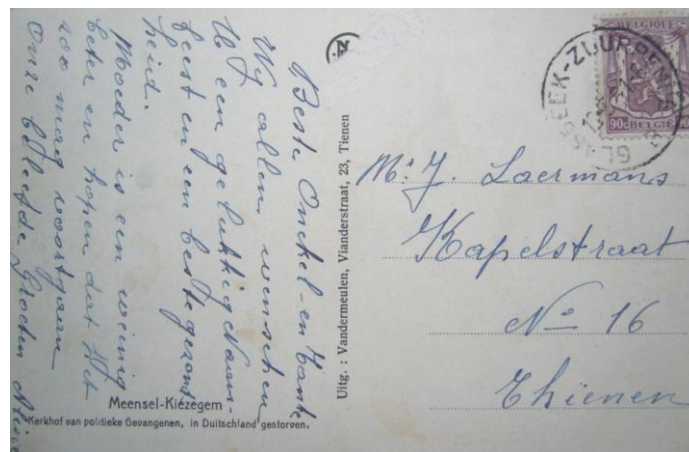 Beste Onckel en Tante
Wij allen wenschen
U een gelukkig Naam-
feest en een beste gezond
heid.
Moeder is een weinig
beter en hopen dat het
zoo mag voortgaan
Onze beleefde Groeten
Meensel-Kiezegem
Kerkhof van politieke Gevangenen, in Duitschland gestorven.
Uitg. : Vandermeulen, Vianderstraat, 23, Tienen
BELGIQUE
90c BELGIË
GLABBEEK-ZUURBEMDE
Mr J. Laermans
Kapelstraat
No 16
Thienen